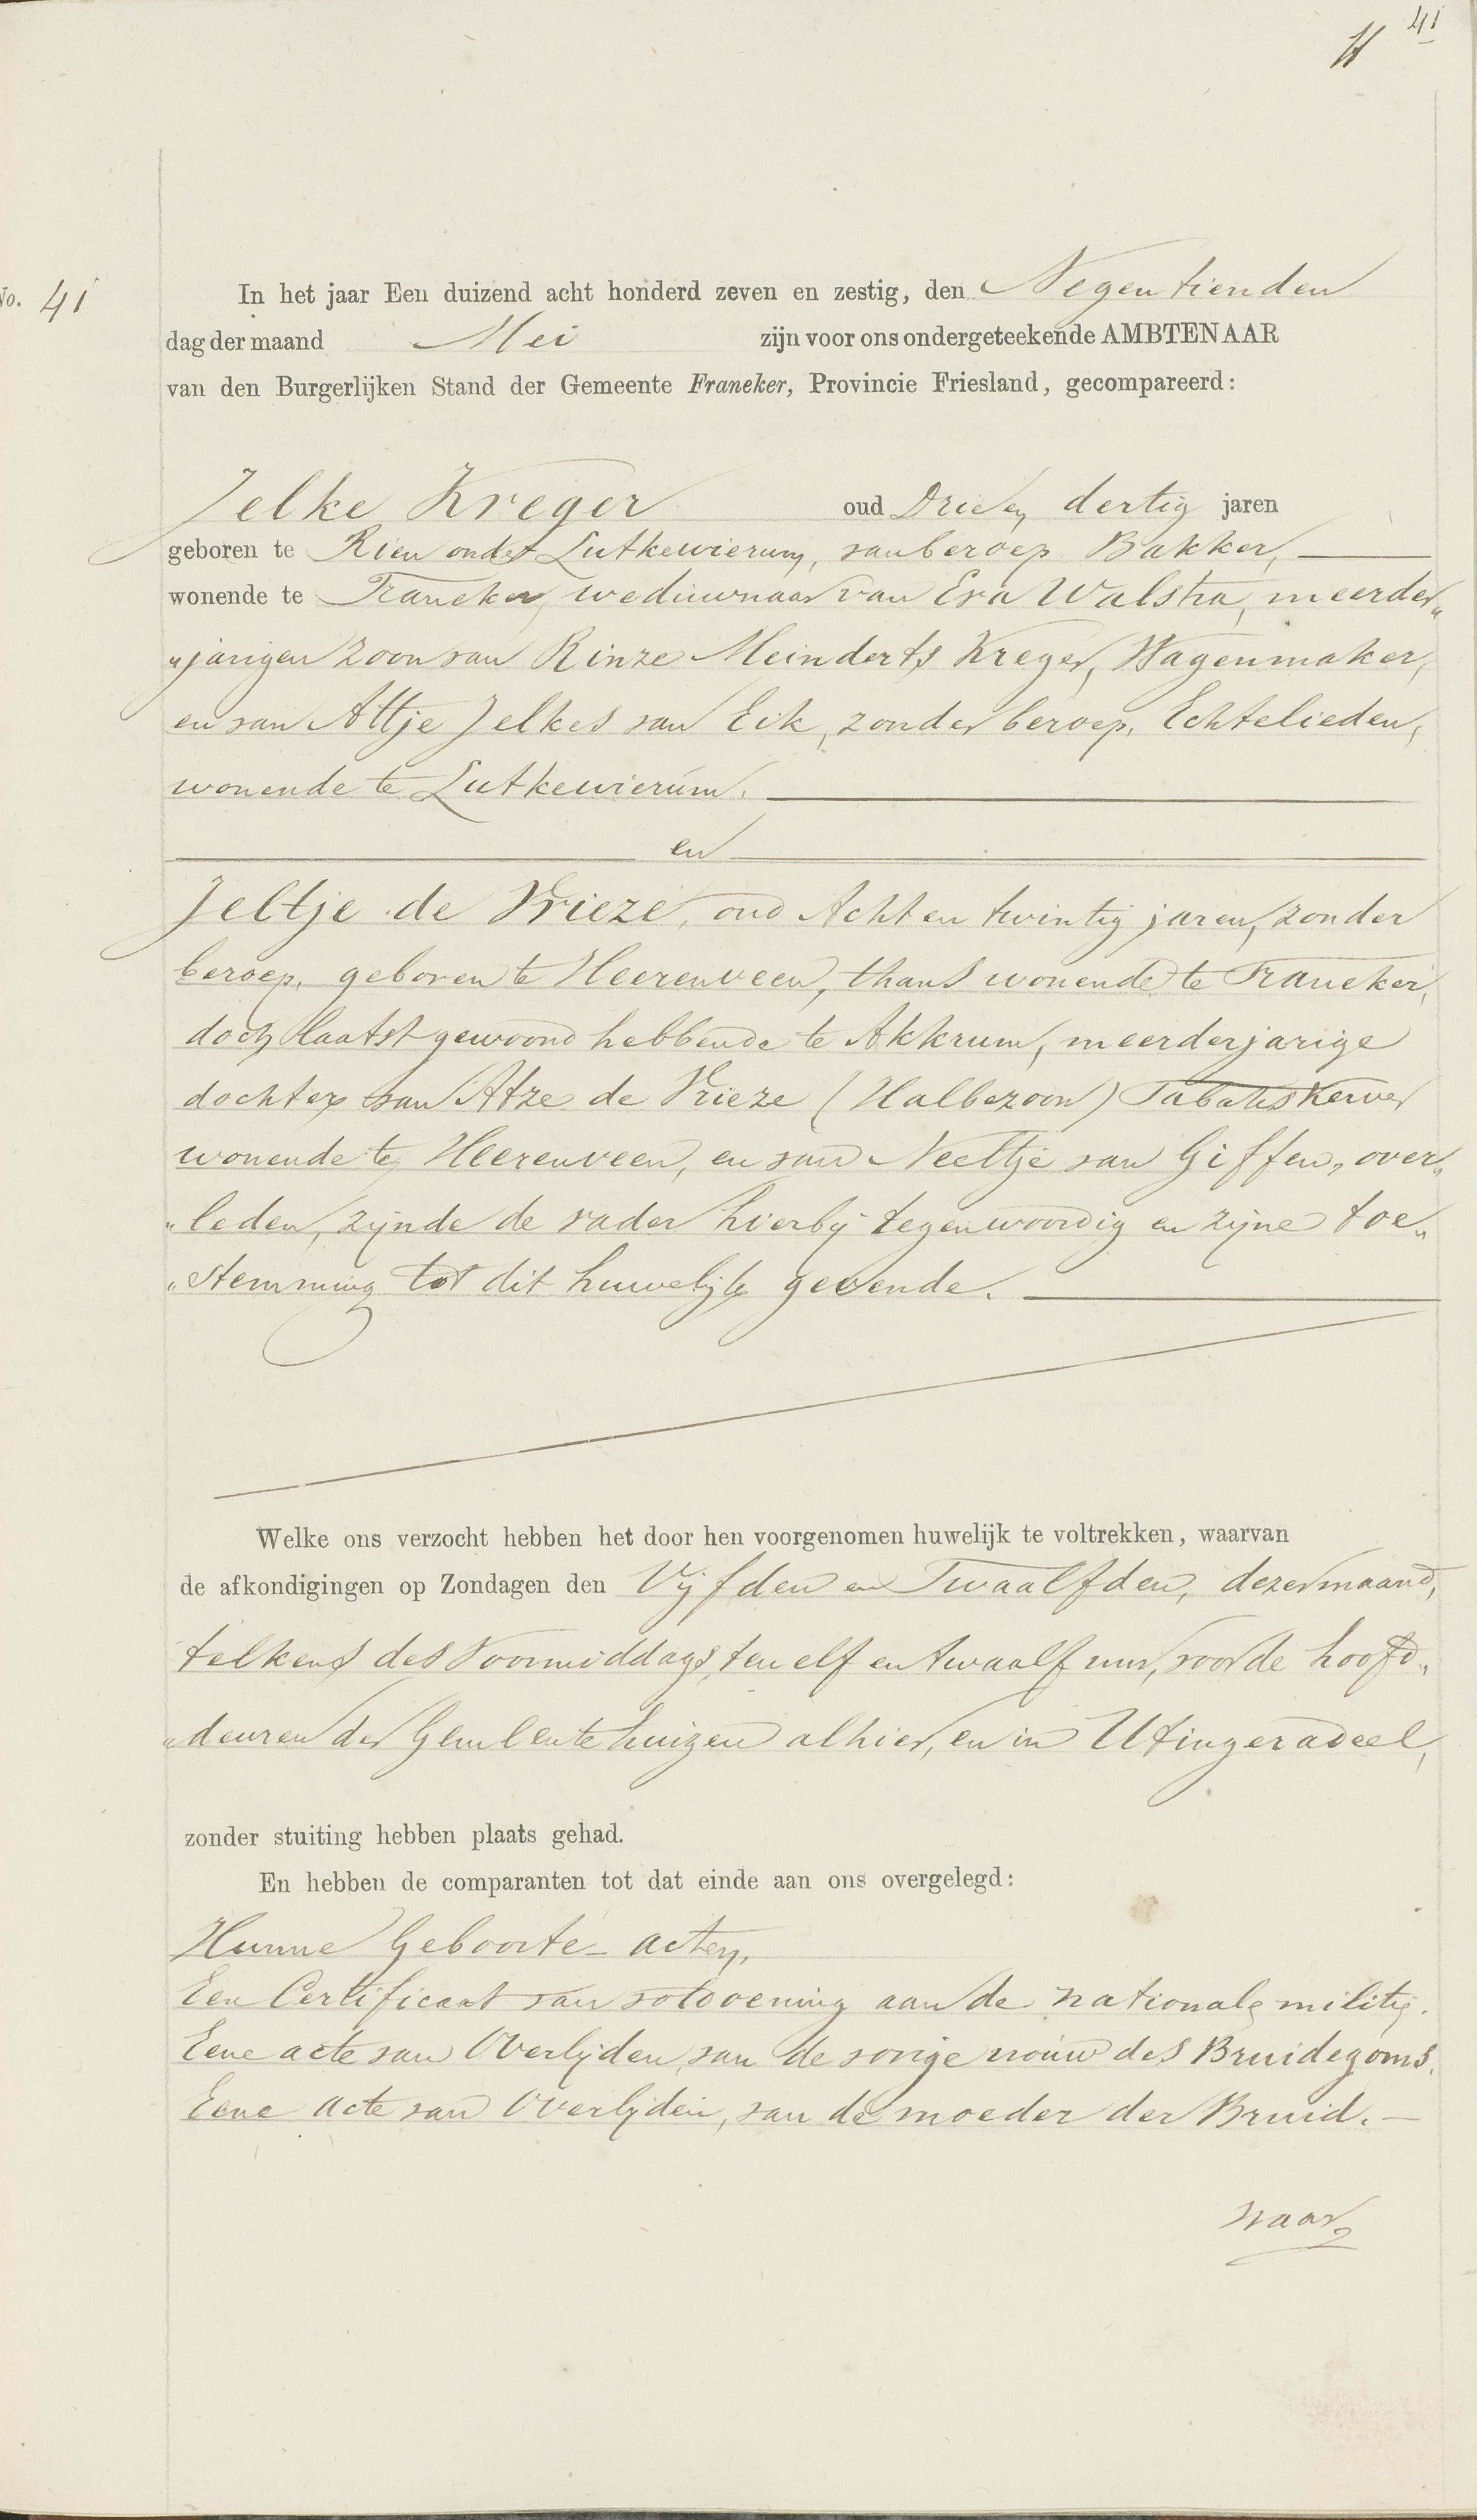 41
No. 41
In het jaar Een duizend acht honderd zeven en zestig, den Negentienden
dag der maand Mei zijn voor ons ondergeteekende AMBTENAAR
van den Burgerlijken Stand der Gemeente Franeker, Provincie Friesland, gecompareerd:
Jelke Kreger oud Drie en dertig jaren
geboren te Rien onder Lutkewierum, van beroep Bakker,
wonende te Franeker, weduwnaar van Eva Walstra, meerder„
„jarigen zoon van Rinze Meinderts Kreger, Wagenmaker,
en van Attje Jelkes van Eik, zonder beroep, Echtelieden,
wonende te Lutkewierum.
en
Jeltje de Vrieze, oud Acht en twintig jaren, zonder
beroep, geboren te Heerenveen, thans wonende te Franeker,
doch laatst gewoond hebbende te Akkrum, meerderjarige
dochter van Atze de Vrieze (Halbezoon) Tabakskerver
wonende te Heerenveen, en van Neeltje van Giffen, over„
„leden, zijnde de vader hierbij tegenwoordig en zijne toe„
„stemming tot dit huwelijk gevende.
Welke ons verzocht hebben het door hen voorgenomen huwelijk te voltrekken, waarvan
de afkondigingen op Zondagen den Vijfden en Twaalfden, dezer maand,
telkens des Voormiddags, ten elf en twaalf uur, voor de hoofd„
„deuren der Gemeentehuizen alhier, en in Utingeradeel,
zonder stuiting hebben plaats gehad.
En hebben de comparanten tot dat einde aan ons overgelegd:
Hunne Geboorte-acten,
Een Certificaat van voldoening aan de nationale militie.
Eene acte van Overlijden, van de vorige vrouw des Bruidegoms.
Eene acte van Overlijden, van de moeder der Bruid.